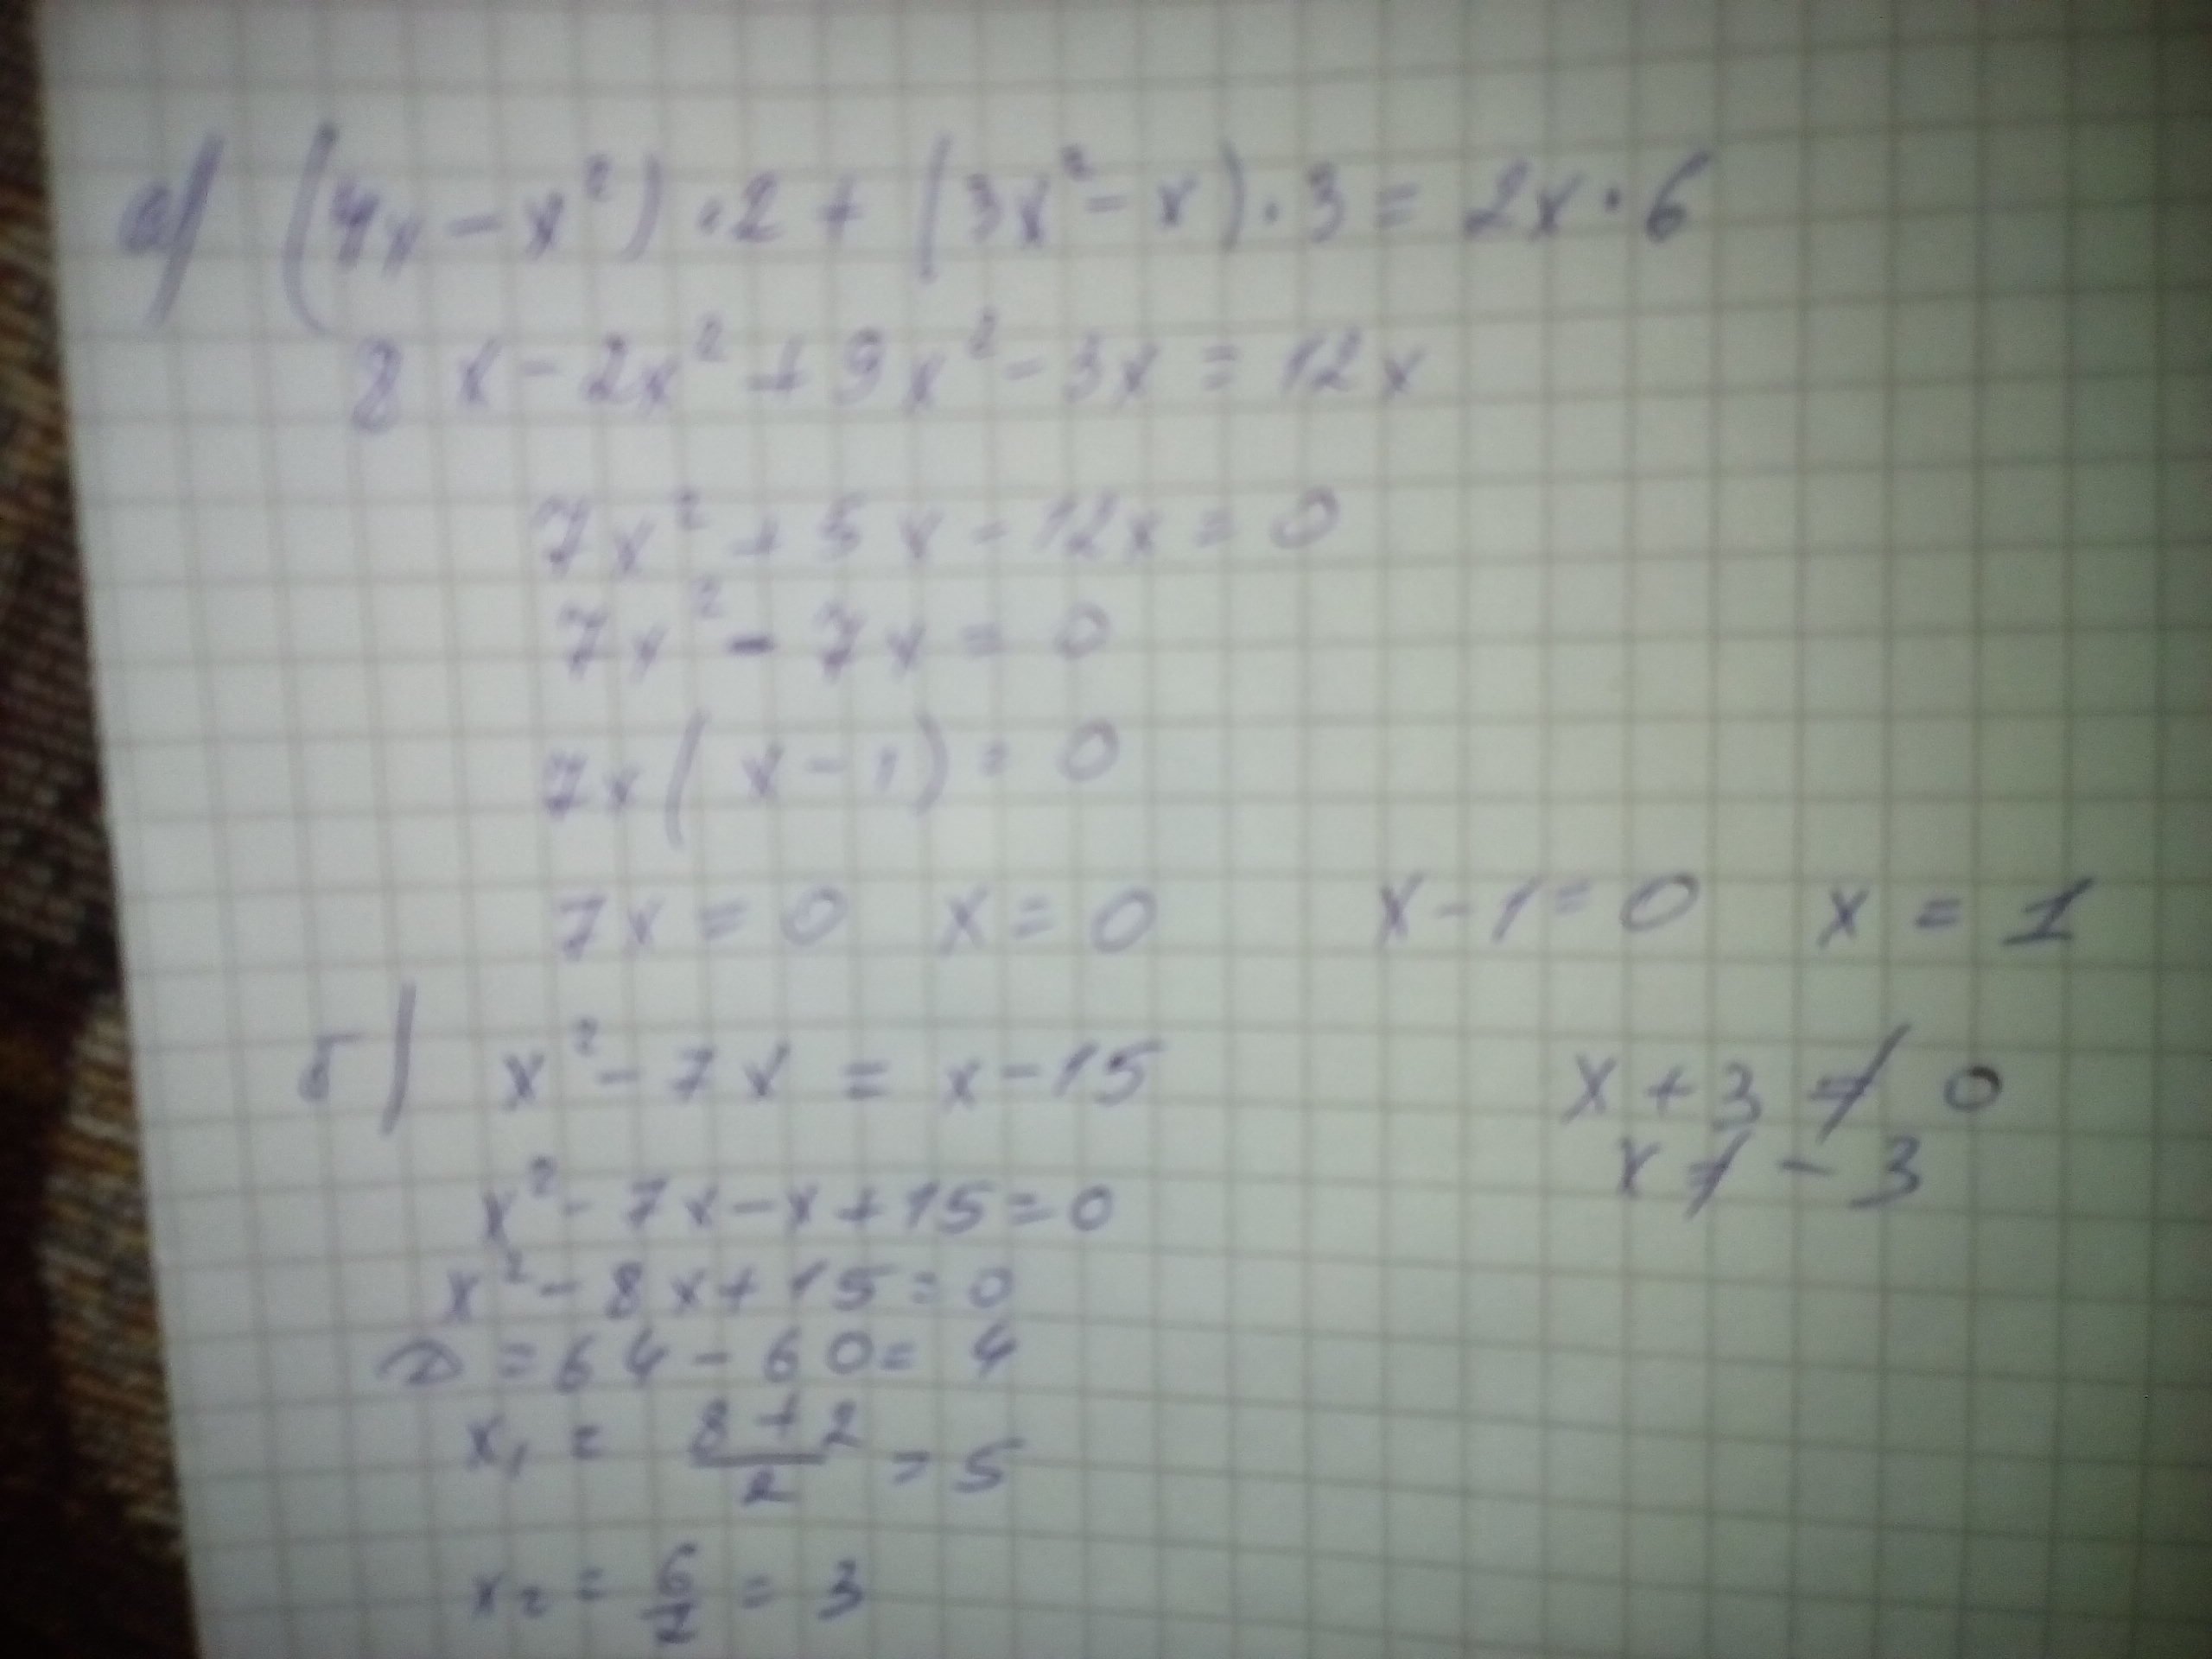 а) (4x - x²) · 2 + (3x² - x) · 3 = 2x · 6
8x - 2x² + 9x² - 3x = 12x
7x² + 5x - 12x = 0
7x² - 7x = 0
7x(x - 1) = 0
7x = 0 x = 0 x - 1 = 0 x = 1
б) x² - 7x = x - 15 x + 3 ≠ 0
x ≠ - 3
x² - 7x - x + 15 = 0
x² - 8x + 15 = 0
D = 64 - 60 = 4
x₁ = (8 + 2)/2 = 5
x₂ = 6/2 = 3